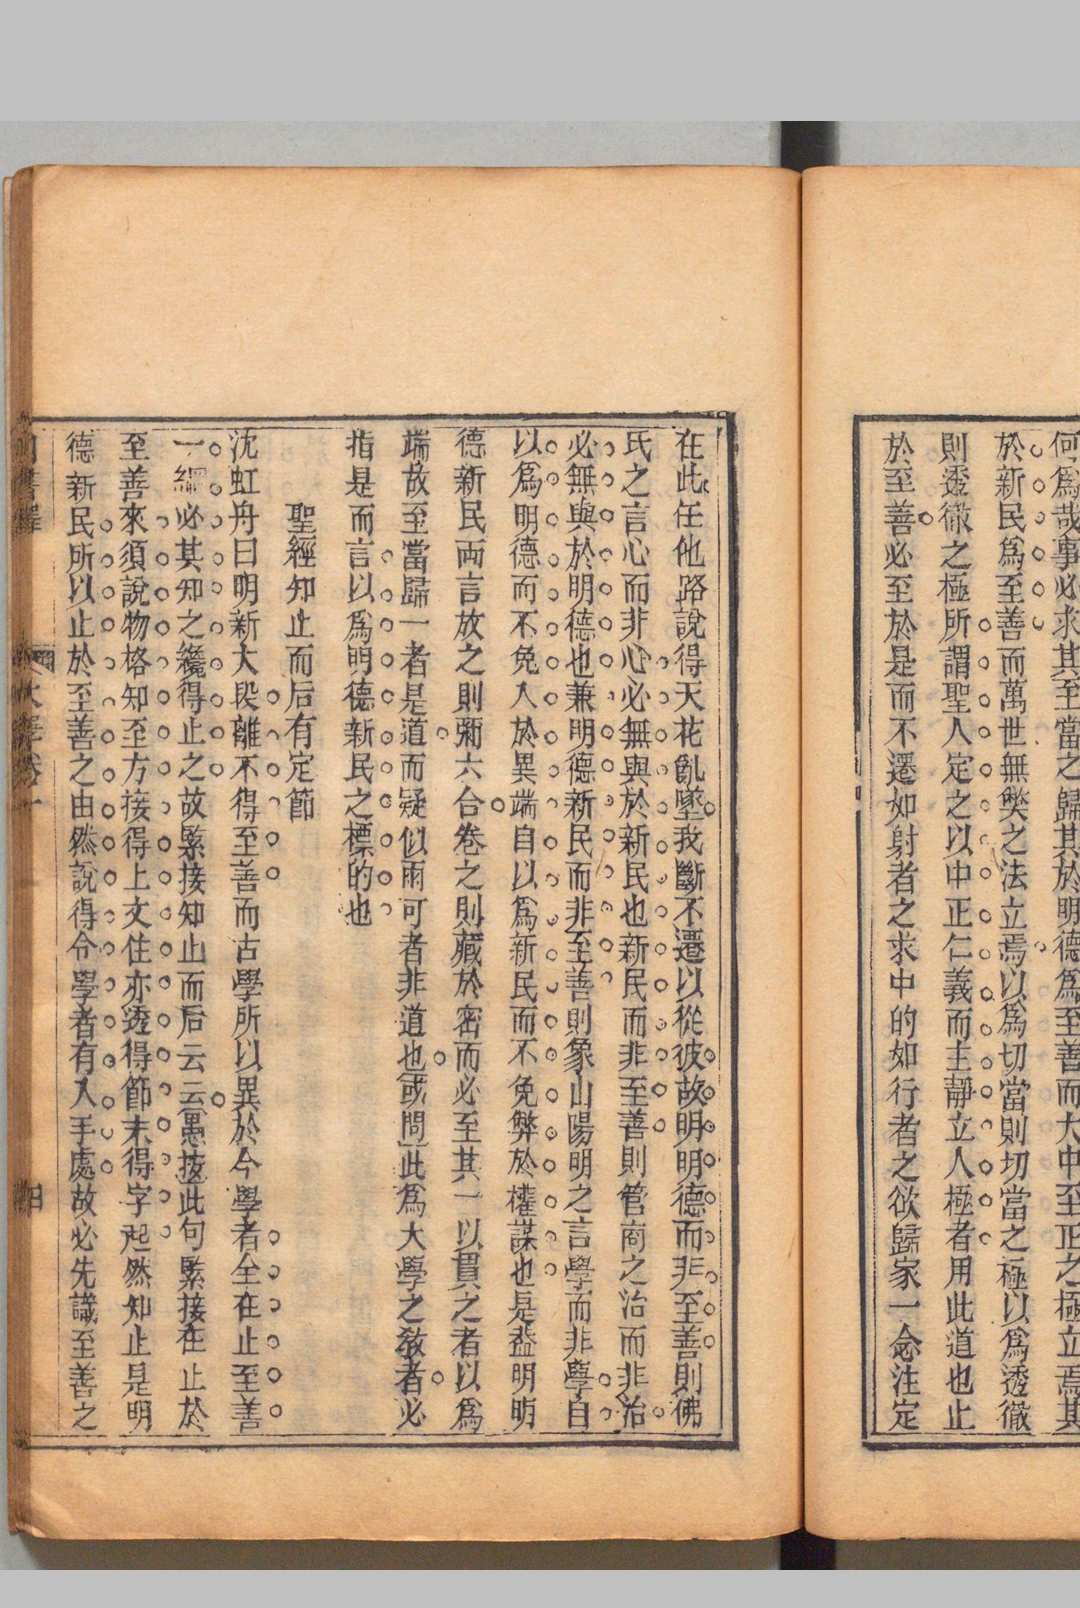 何爲哉事必求其至當之歸其於明德爲至善而大中至正之極立焉其
於新民爲至善而萬世無獘之法立焉以爲切當則切當之極以爲透徹
則透徹之極所謂聖人定之以中正仁義而主靜立人極者用此道也止
於至善必至於是而不遷如射者之求中的如行者之欲歸家一念注定
在此任他路說得天花亂墜我斷不遷以從彼故明明德而非至善則佛
氏之言心而非心必無與於新民也新民而非至善則管商之治而非治
必無與於明德也兼明德新民而非至善則象山陽明之言學而非學自
以爲明德而不免入於異端自以爲新民而不免弊於權謀也是葢明明
德新民两言放之則彌六合卷之則藏於密而必至其一以貫之者以爲
端故至當歸一者是道而疑似兩可者非道也或問此爲大學之敎者必
指是而言以爲明德新民之標的也
聖經知止而后有定節
沈虹舟曰明新大段離不得至善而古學所以異於今學者全在止至善
一綱必其知之纔得止之故緊接知止而后云云愚按此句緊接在止於
至善來須說物格知至方接得上文住亦透得節末得字起然知止是明
德新民所以止於至善之由然說得令學者有入手處故必先識至善之
四書繹
大學卷一
四